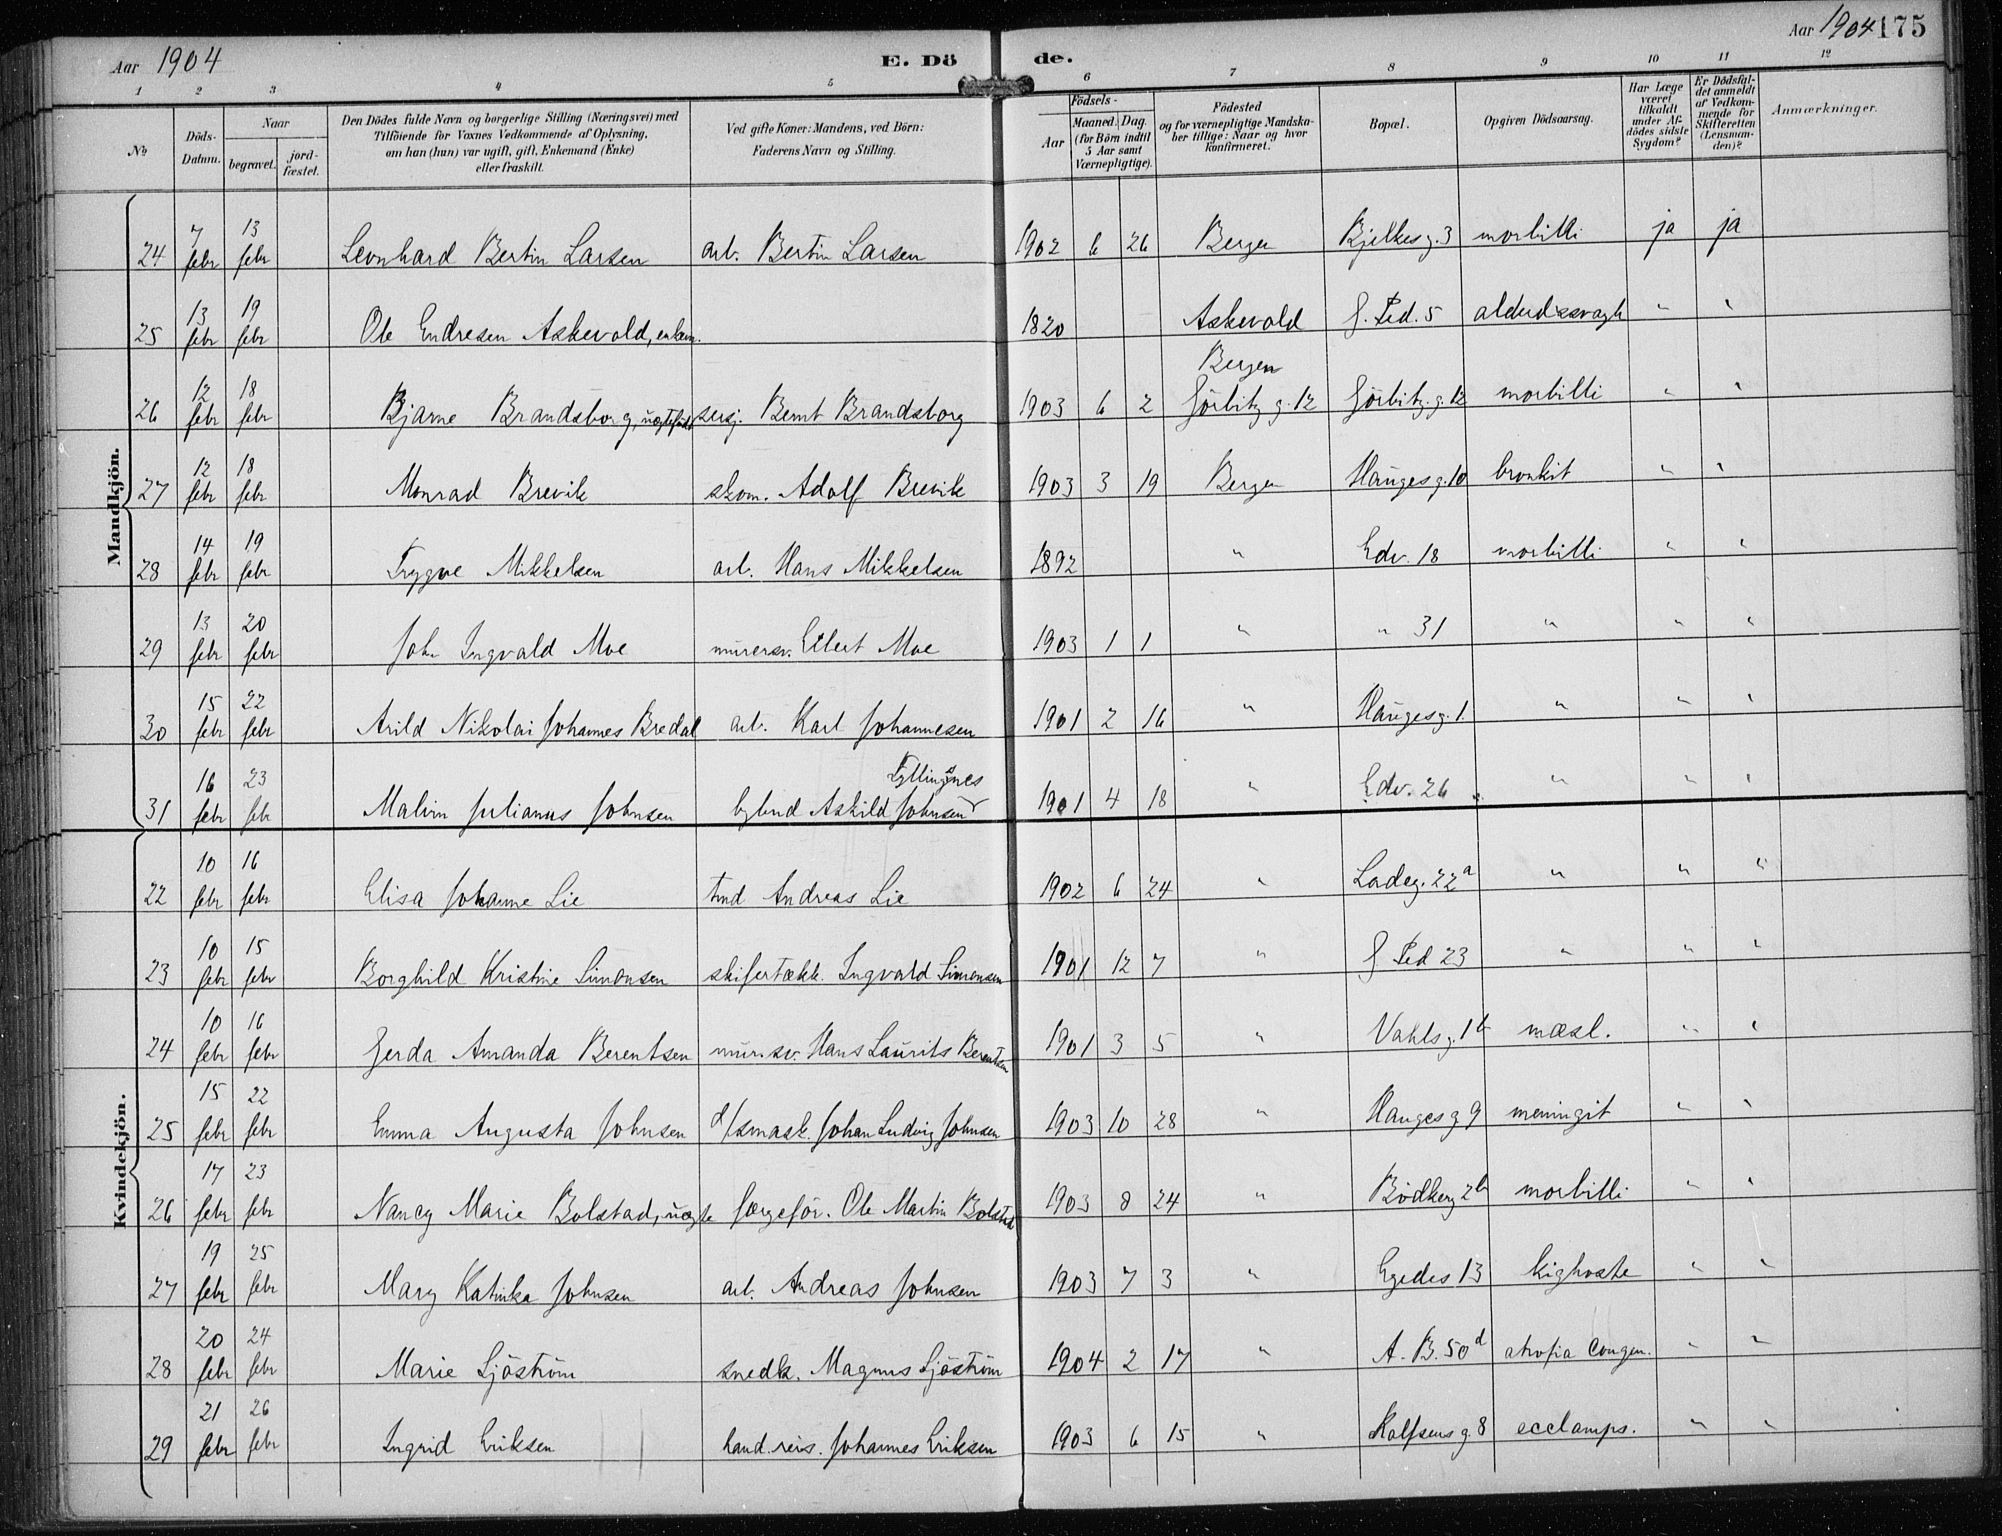 Aar 1904 E. Dö de. Aar 1904 175
1 2 3 4 5 6 7 8 9 10 11 12
No
Döds-Datum.
Naar
begravet.
jord-fæstet.
Den Dödes fulde Navn og borgerlige Stilling (Næringsvei) med
Tilföiende for Voxnes Vedkommende af Oplysning,
om han (hun) var ugift, gift, Enkemand (Enke)
eller fraskilt.
Ved gifte Koner: Mandens, ved Börn:
Faderens Navn og Stilling.
Födsels-
Aar
Maaned. Dag.
(for Börn indtil
5 Aar samt
Værnepligtige).
Födested
og for værnepligtige Mandska-
ber tillige: Naar og hvor
konfirmeret.
Bopæl.
Opgiven Dödsaarsag.
Har Læge
været
tilkaldt
under Af-
dödes sidste
Sygdom?
Er Dödsfal-
det anmeldt
af Vedkom-
mende for
Skifteretten
(Lensman-
den)?
Anmærkninger.
Mandkjön.
24 7 febr 13 febr Leonhard Bertin Larsen arb. Bertin Larsen 1902 6 26 Bergen Bjelkesg. 3 morbilli ja ja
25 13 febr 19 febr Ole Endresen Askevold, enkem. 1820 Askevold 5 " "
26 12 febr 18 febr Bjarne Brandsborg, sersj. Bernt Brandsborg 1903 6 2 Bergen Görbitz g. 12 Görbitz. g. 12 morbilli " "
27 12 febr 18 febr Monrad Brevik skom. Adolf Brevik 1903 3 19 Bergen Haugesg. 10 bronkit " "
28 14 febr 19 febr Trygve Mikkelsen arb. Hans Mikkelsen 1892 " Edv. 18 morbilli " "
29 13 febr 20 febr John Ingvald Moe murersv. Eilert Moe 1903 1 1 " " 31 " " "
30 15 febr 22 febr Arild Nikolai Johannes Bredal arb. Karl Johannesen 1901 2 16 " Haugesg. 1. " " "
31 16 febr 23 febr Malvin Julianus Johnsen bybud Askild Johnsen Tyllingsnes 1901 4 18 " Edv. 26 " " "
Kvindekjön.
22 10 febr 16 febr Elisa Johanne Lie Andreas Lie 1902 6 24 " Ladeg. 22a " " "
23 10 febr 15 febr Borghild Kristine Simonsen skifertækk. Ingvald Simonsen 1901 12 7 " 23 " " "
24 10 febr 16 febr Gerda Amanda Berentsen mursv. Hans Laurits Berentsen 1901 3 5 " Vahls g. 1b mæsl. " "
25 15 febr 22 febr Emma Augusta Johnsen d/smask. Johan Ludvig Johnsen 1903 10 28 " Hauges g 9 meningit " "
26 17 febr 23 febr Nancy Marie Bolstad, uægte færgeför. Ole Martin Bolstad 1903 8 24 " Bödkerg 2b morbilli " "
27 19 febr 25 febr Mary Katinka Johnsen arb. Andreas Johnsen 1903 7 3 " Egedes 13 kighoste " "
28 20 febr 24 febr Marie Sjöström snedk. Magnus Sjöström 1904 2 17 " A. B. 50d atrofia congen. " "
29 21 febr 26 febr Ingrid Eriksen hand.reis. Johannes Eriksen 1903 6 15 " Kalfsens g. 8 ecclamps. " "